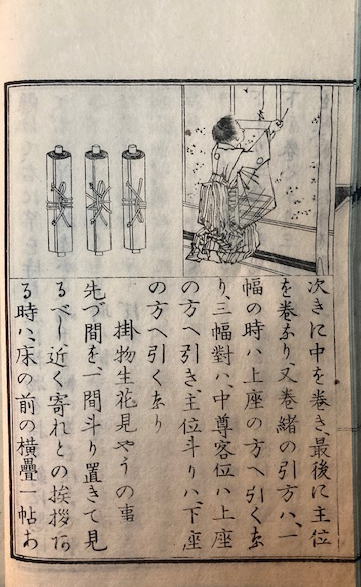 次きに中を巻き、最後に主位
を巻なり又巻緒の引方ハ、一
幅の時ハ上座の方へ引くな
り、三幅對ハ、中尊客位ハ上座
の方へ引き、主位斗りハ、下座
の方へ引くなり
掛物生花見やうの事
先づ間を、一間斗り置きて見
るべし近く寄れとの挨拶ア
る時ハ、床の前の横疊一帖お